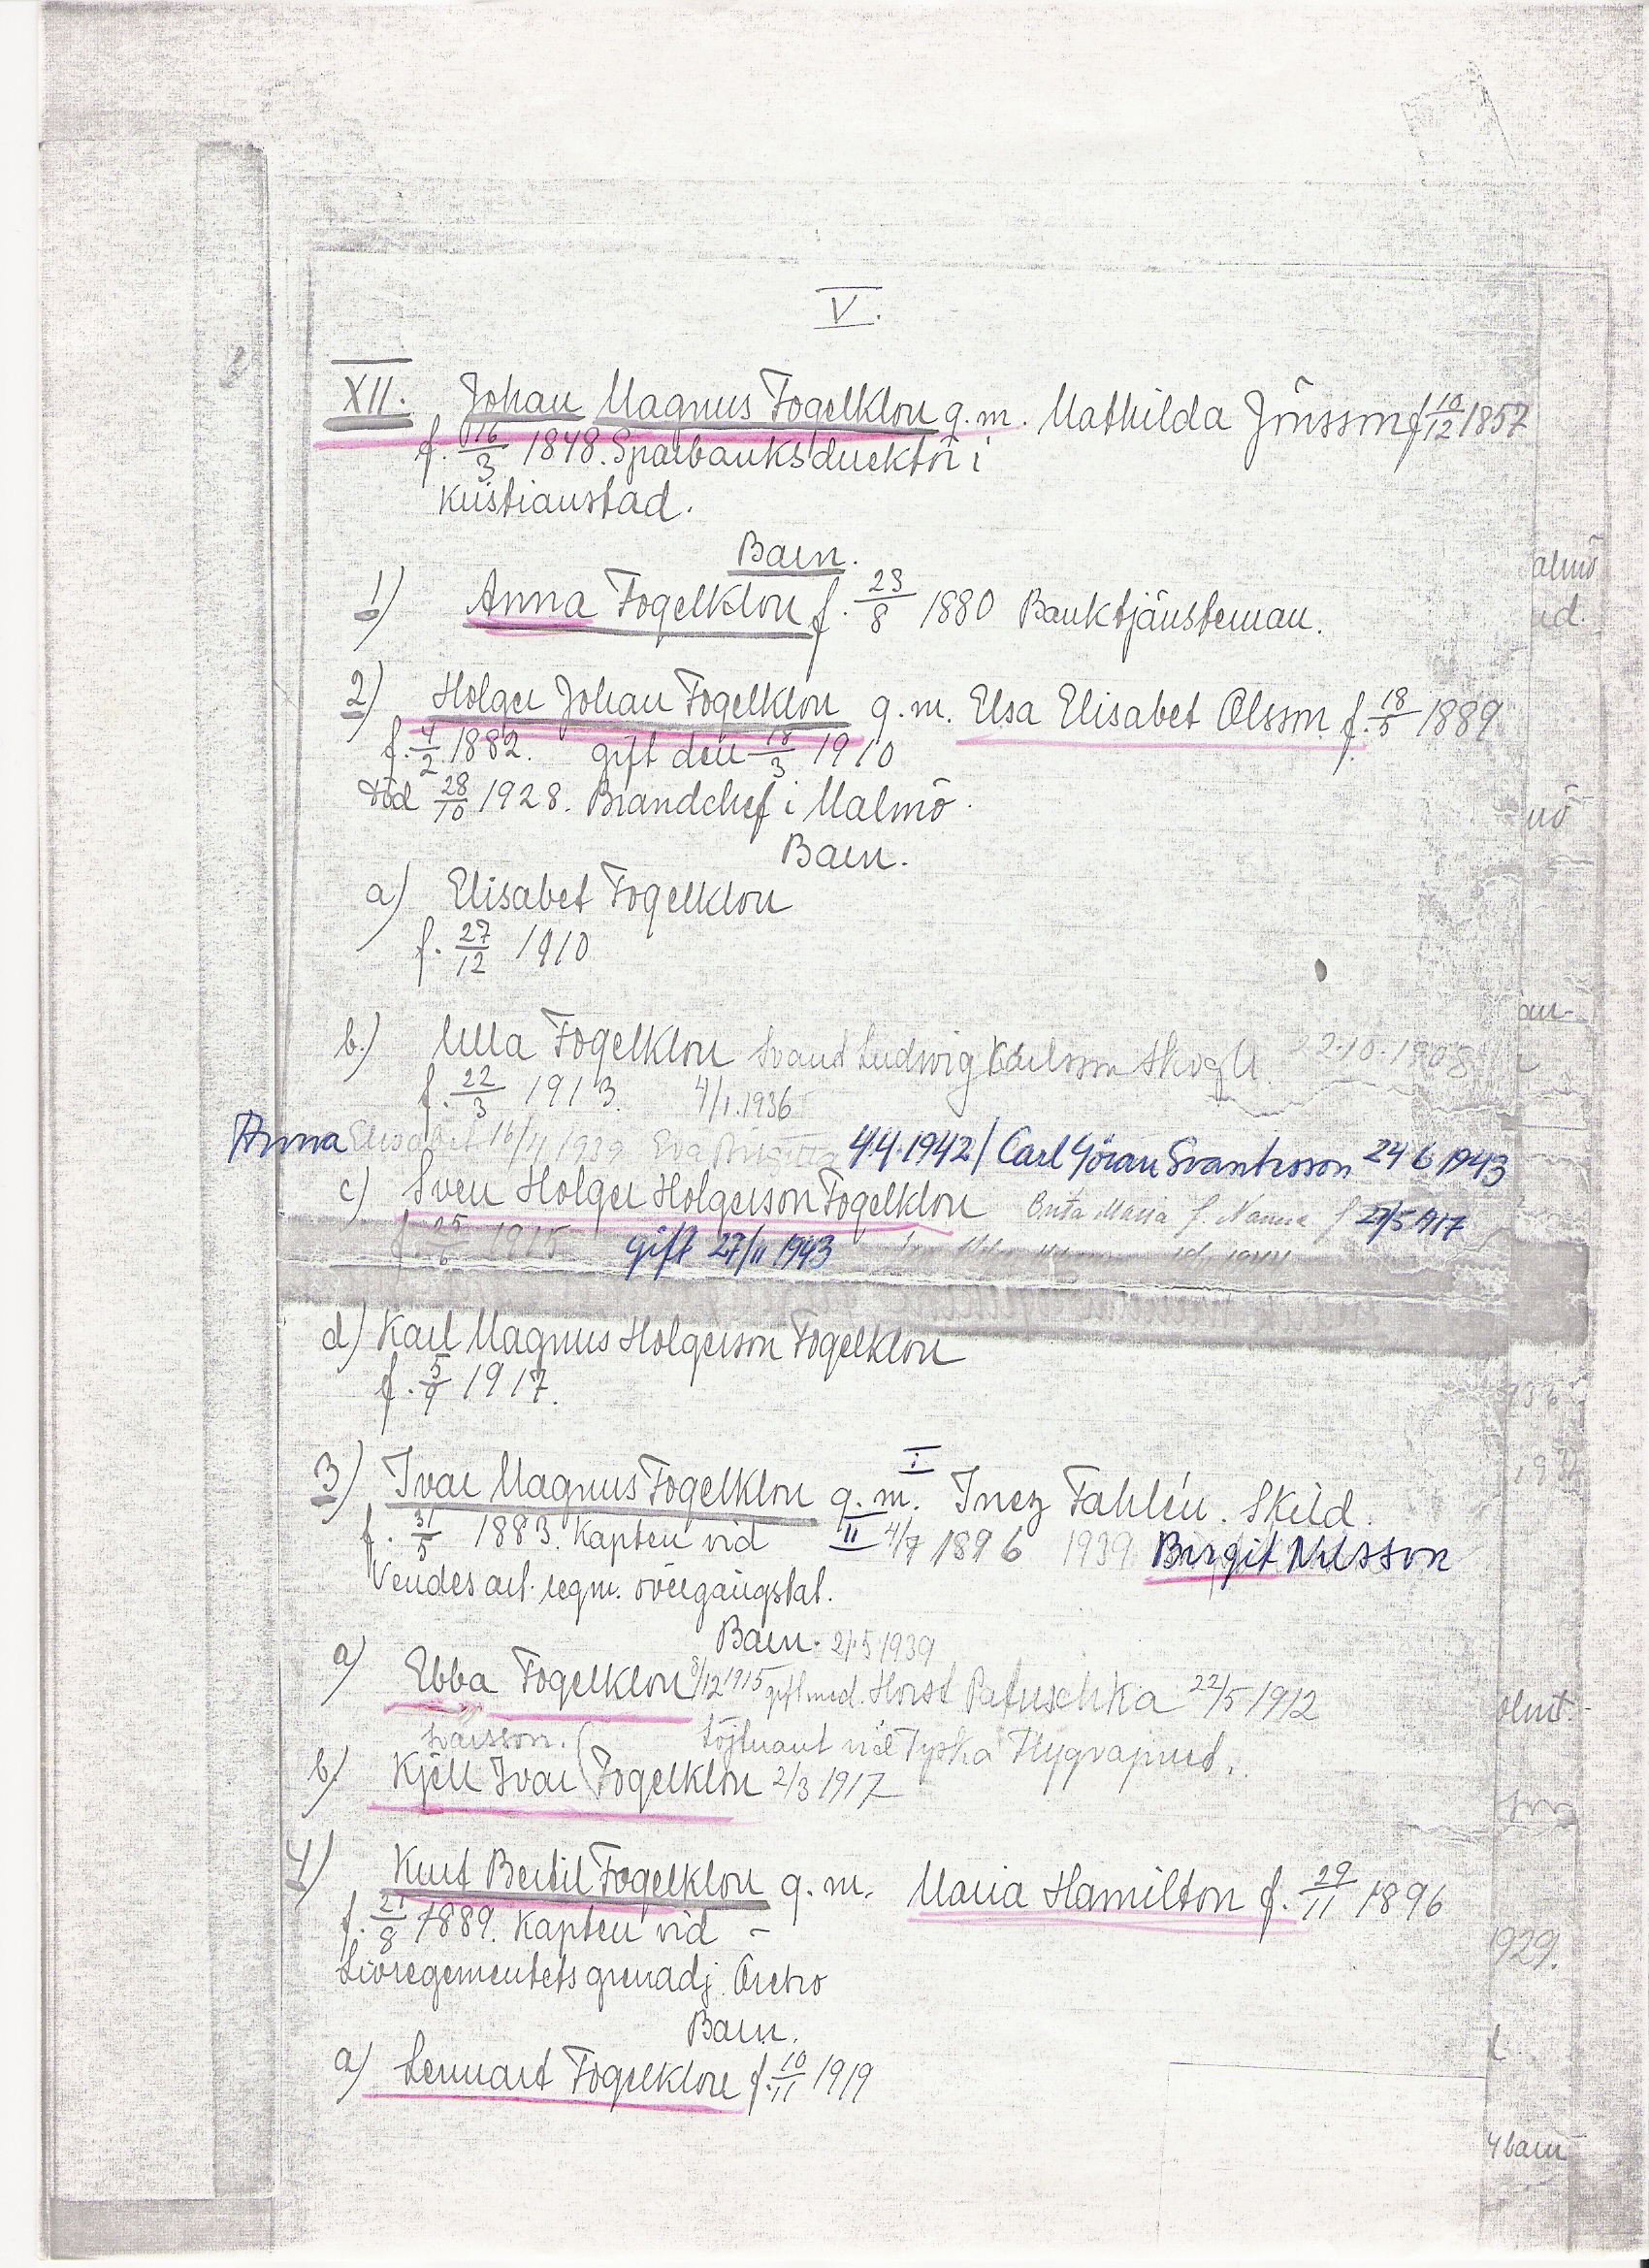 V.
XII. Johan Magnus Fogelklou g.m. Mathilda Jönsson f 10/12 1857
f. 16/3 1848. Sparbanksdirektör i
Kristianstad.
Barn.
1) Anna Fogelklou f. 23/8 1880 Banktjänsteman.
2) Holger Johan Fogelklou g.m. Elsa Elisabet Olsson f. 18/5 1889
f. 4/2 1882. gift den 18/3 1910
död 28/10 1928. Brandchef i Malmö.
Barn.
a) Elisabet Fogelklou
f. 27/12 1910
b.) Ulla Fogelklou Svant Ludwig Karlsson 22.10.1908
f. 22/3 1913. 4/1.1936
Anna Elisabet 16/4 1939 Eva Birgitta 4.4.1942 / Carl Göran Svantesson 24 6 1943
c) Sven Holger Holgerson Fogelklou Maria f. Nanne f 27/5 1917
f. 25/6 1915 gift 27/11 1943
d) Karl Magnus Holgerson Fogelklou
f. 5/9 1917.
I
3) Ivar Magnus Fogelklou g.m. Inez Fahlén. Skild.
f. 31/5 1883. Kapten vid II 4/7 1896 1939 Birgit Nilsson
Vendes art. regm. övergångstat.
Barn. 21.5 1939
a) Ebba Fogelklou 8/12 1915 gift med. Horst Patuschka 22/5 1912
Ivarsson. ( Löjtnant vid Tyska Flygvapnet.
b) Kjell Ivar Fogelklou 2/3 1917
4) Kurt Bertil Fogelklou g.m. Maria Hamilton f. 29/11 1896
f. 21/8 1889. Kapten vid –
Livregementets grenadj. Örebro
Barn.
a) Lennart Fogelklou f. 10/11 1919
1929.
4 barn